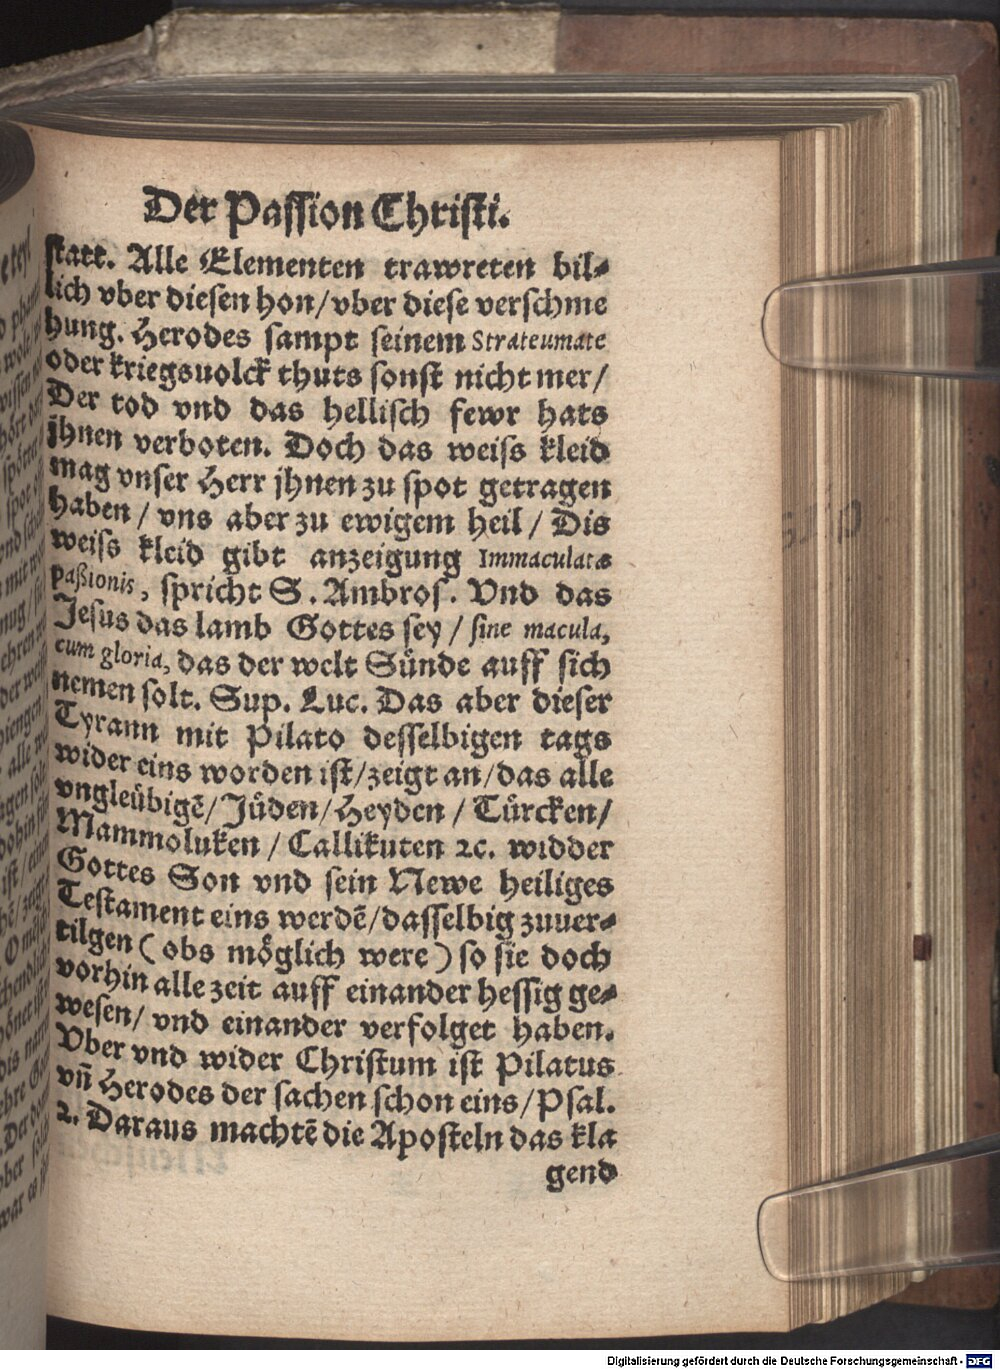 Der Passion Christi.
statt. Alle Elementen trawreten bil-
lich vber diesen hon/vber diese verschme
hung. Herodes sampt seinem Strateumate
oder kriegsuolck thuts sonst nicht mer/
Der tod vnd das hellisch fewr hats
jhnen verboten. Doch das weiss kleid
mag vnser Herr jhnen zu spot getragen
haben / vns aber zu ewigem heil / Dis
weiss kleid gibt anzeigung Immaculatæ
paßionis, spricht S. Ambros. Vnd das
Jesus das lamb Gottes sey / sine macula,
cum gloria, das der welt Sünde auff sich
nemen solt. Sup. Luc. Das aber dieser
Tyrann mit Pilato desselbigen tags
wider eins worden ist/zeigt an/das alle
vngleübigē/Jüden/Heyden / Türcken/
Mammoluken / Callikuten ꝛc. widder
Gottes Son vnd sein Newe heiliges
Testament eins werdē/dasselbig zuuer-
tilgen ( obs möglich were ) so sie doch
vorhin alle zeit auff einander hessig ge-
wesen/ vnd einander verfolget haben.
Vber vnd wider Christum ist Pilatus
vñ Herodes der sachen schon eins/Psal.
2. Daraus machtē die Aposteln das kla
gend
Digitalisierung gefördert durch die Deutsche Forschungsgemeinschaft - DFG